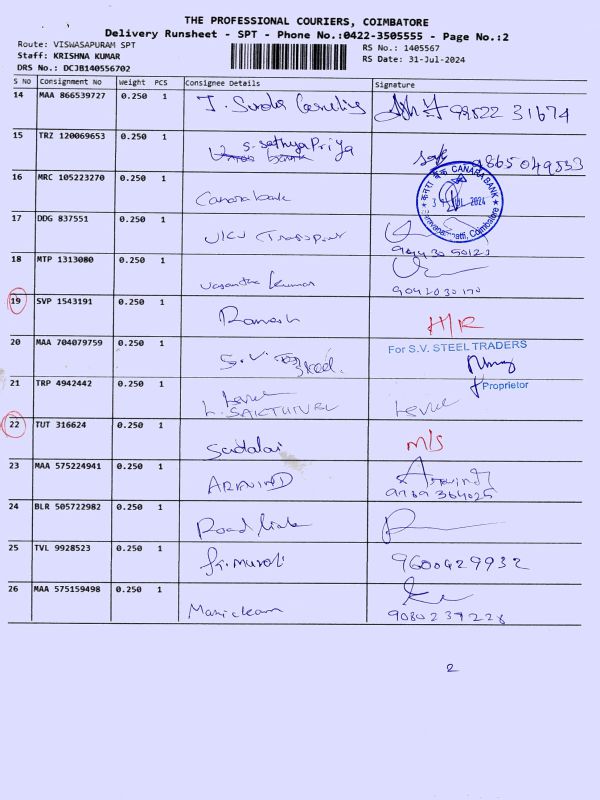 THE PROFESSIONAL COURIERS, COIMBATORE
Delivery Runsheet - SPT - Phone No.:0422-3505555 - Page No.:2
Route: VISWASAPURAM SPT
Staff: KRISHNA KUMAR
DRS No.: DCJB140556702
RS No.: 1405567
RS Date: 31-Jul-2024
S No Consignment No Weight PCS Consignee Details Signature
14 MAA 866539727 0.250 1 J. 99522 31674
15 TRZ 120069653 0.250 1 S. Sathya Priya 9865049533
16 MRC 105223270 0.250 1 Canara bank
CANARA BANK
JUL 2024
Coimbatore
17 DDG 837551 0.250 1 Transport
18 MTP 1313080 0.250 1 Vasantha Kumar
19 SVP 1543191 0.250 1 Ramesh H/R
20 MAA 704079759 0.250 1 S.V. Steel.
For S.V. STEEL TRADERS
Proprietor
21 TRP 4942442 0.250 1
L. SAKTHIVEL
22 TUT 316624 0.250 1 Sudalai M/S
23 MAA 575224941 0.250 1 ARAVIND Aravind
9789364025
24 BLR 505722982 0.250 1 Road link
25 TVL 9928523 0.250 1 9600429932
26 MAA 575159498 0.250 1 Manickam
9080237228
2